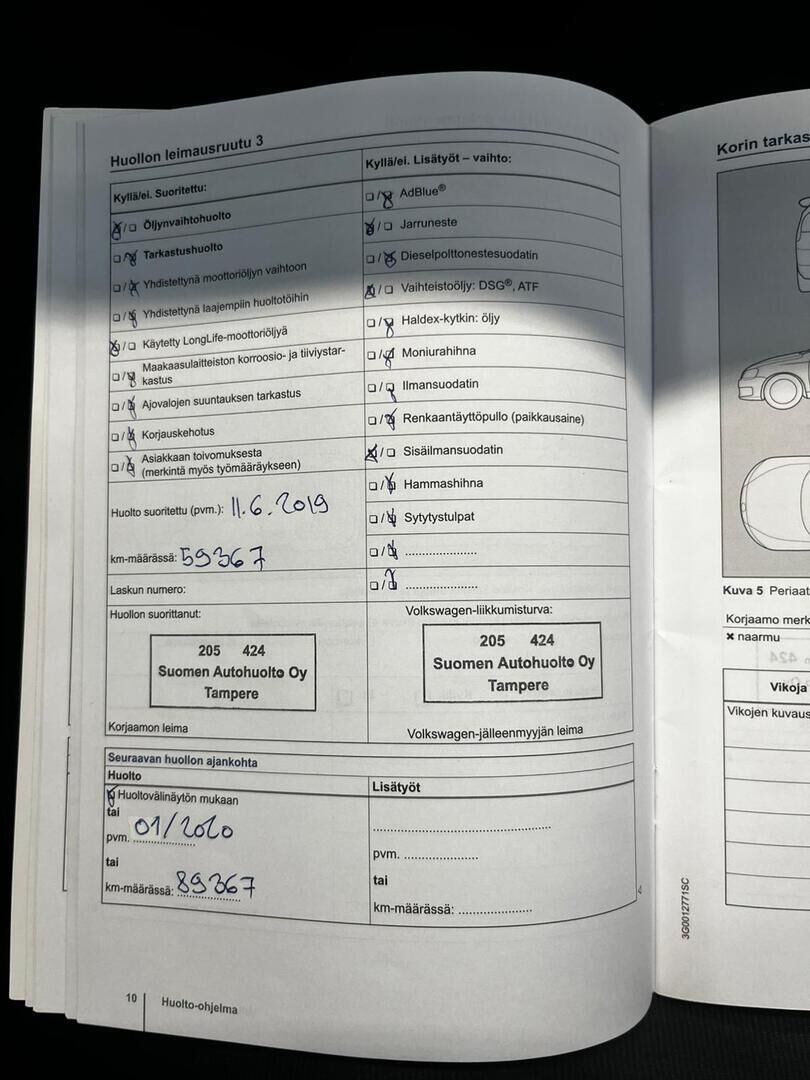 Huollon leimausruutu 3
Kyllä/ei. Suoritettu:
☒/☐ Öljynvaihtohuolto
☐/☒ Tarkastushuolto
☐/☒ Yhdistettynä moottoriöljyn vaihtoon
☐/☒ Yhdistettynä laajempiin huoltotöihin
☒/☐ Käytetty LongLife-moottoriöljyä
☐/☒ Maakaasulaitteiston korroosio- ja tiiviystar-
kastus
☐/☒ Ajovalojen suuntauksen tarkastus
☐/☒ Korjauskehotus
☐/☒ Asiakkaan toivomuksesta
(merkintä myös työmääräykseen)
Huolto suoritettu (pvm.): 11.6.2019
km-määrässä: 59367
Laskun numero:
Huollon suorittanut:
205 424
Suomen Autohuolto Oy
Tampere
Korjaamon leima
Kyllä/ei. Lisätyöt – vaihto:
☐/☒ AdBlue®
☒/☐ Jarruneste
☐/☒ Dieselpolttonestesuodatin
☒/☐ Vaihteistoöljy: DSG®, ATF
☐/☒ Haldex-kytkin: öljy
☐/☒ Moniurahihna
☐/☒ Ilmansuodatin
☐/☒ Renkaantäyttöpullo (paikkausaine)
☒/☐ Sisäilmansuodatin
☐/☒ Hammashihna
☐/☒ Sytytystulpat
☐/☒ .....................
☐/☒ .....................
Volkswagen-liikkumisturva:
205 424
Suomen Autohuolto Oy
Tampere
Volkswagen-jälleenmyyjän leima
Seuraavan huollon ajankohta
Huolto
☒ Huoltovälinäytön mukaan
tai
pvm. 01/2020
tai
km-määrässä: 89367
Lisätyöt
.....................................................
pvm. ......................
tai
km-määrässä: .....................
10 Huolto-ohjelma
Korin tarkas
Kuva 5 Periaat
Korjaamo merk
× naarmu
Vikoja
Vikojen kuvaus
3G0012771SC